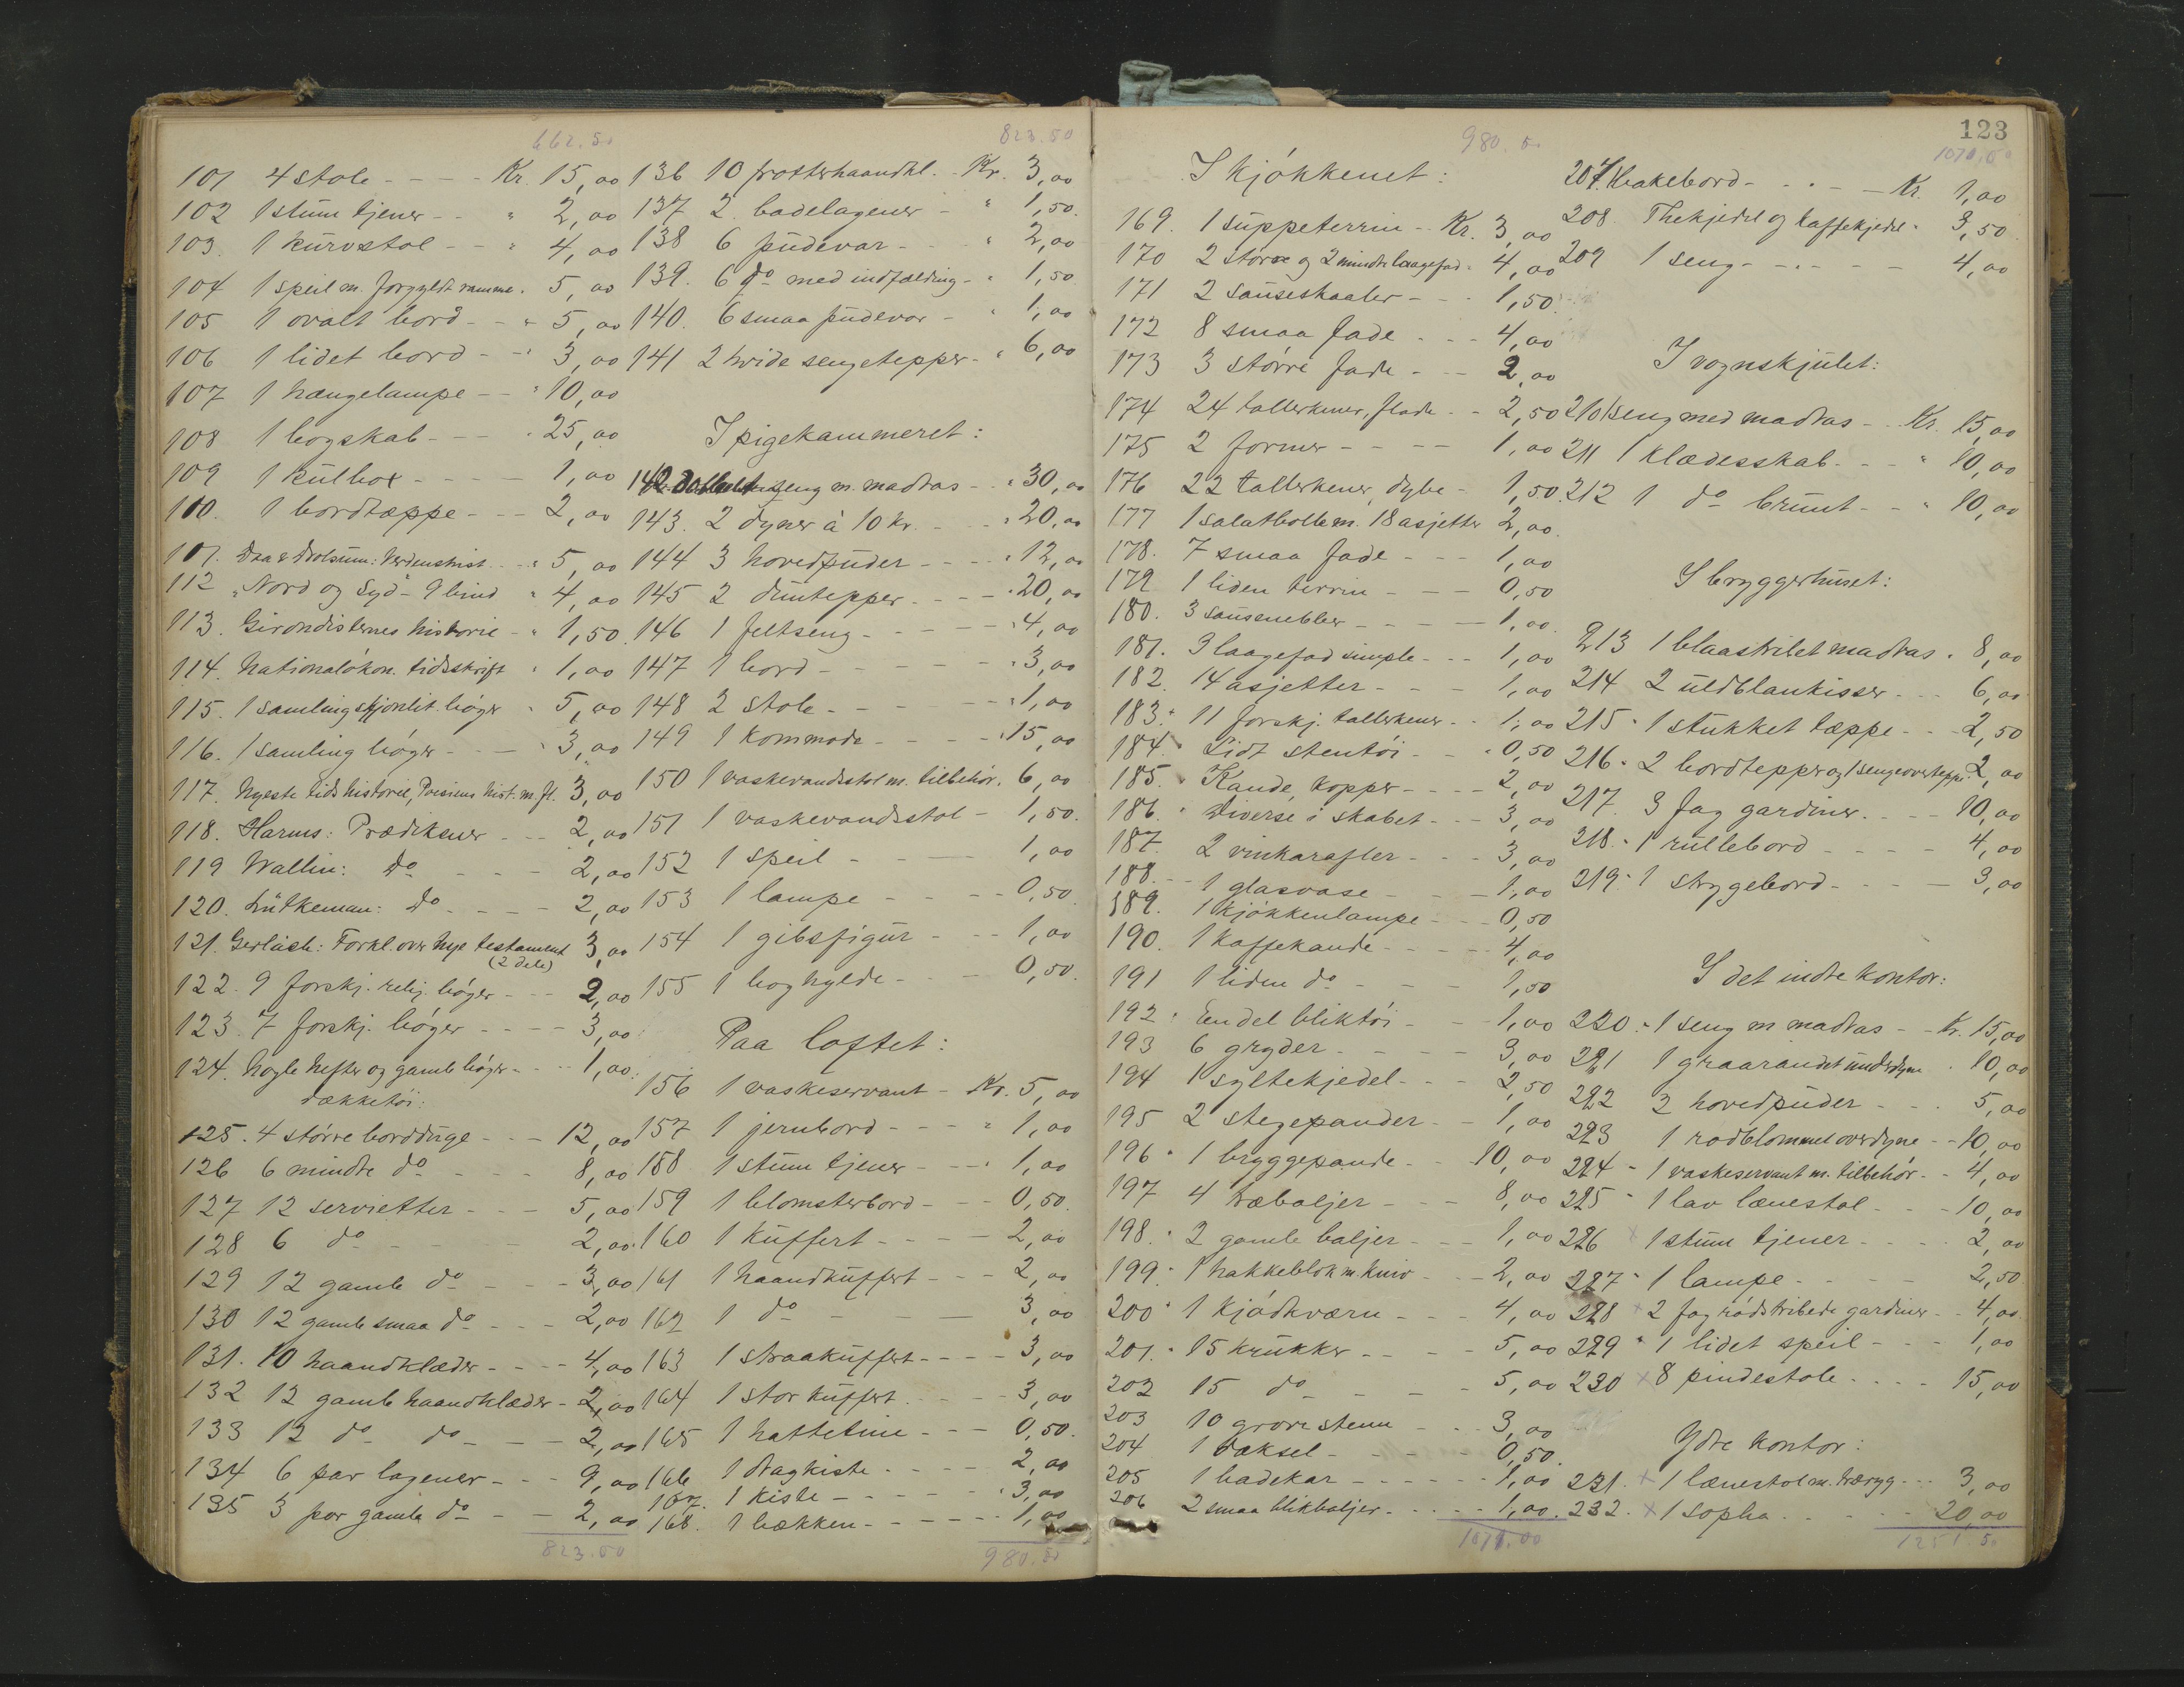 662.50
101 4 stole - - - - Kr. 15,00
102 1 stum tjener - - " 2,00
103. 1 kurvstol - - " 4,00
104 1 speil m. forgyldt ramme " 5,00
105 1 ovalt bord - - " 5,00
106 1 lidet bord - - " 3,00
107 1 hængelampe - - " 10,00
108 1 bogskab - - - " 25,00
109 1 kulbox - - - - 1,00
110. 1 bordtæppe - - - 2,00
111. Daa & Drolsum: Verdenshist. - " 5,00
112 "Nord og Syd" - 9 bind " 4,00
113. Girondisternes historie - " 1,50
114. Nationaløkon. tidsskrift " 1,00
115. 1 samling skjønlit. bøger " 5,00
116. 1 samling bøger - - - " 3,00
117. Nyeste tids historie, m. fl. 3,00
118. Harms: Prædikener - - - 2,00
119 Wallin: do - - - 2,00
120. Lutkeman: do - - - - 2,00
121. Gerlach: Forkl. over Nye testament 3,00
(2 dele)
122. 9 forskj. relig. bøger - - - 2,00
123. 7 forskj. bøger - - - - 3,00
124. Nogle hefter og gamle bøger - - - 1,00
Dækketøi:
125. 4 større borduge - - - 12,00
126 6 mindre do - - - - 8,00
127 12 servietter - - - 5,00
128 6 do - - - 2,00
129 12 gamle do - - - 3,00
130 12 gamle smaa do - - - 2,00
131. 10 haandklæder - - - - 4,00
132 12 gamle haandklæder - 2,00
133 12 do do - - - 2,00
134 6 par lagener - - - 9,00
135 3 par gamle do - - 2,00
823.50
823.50
136 10 frotterhaandkl. - Kr. 3,00
137 2 badelagener - " 1,50
138 6 pudevar - - - " 2,00
139. 6 do med indfælding - " 1,50
140. 6 smaa pudevar - " 1,00
141 2 hvide sengetepper - " 6,00
I pigekammeret:
142 Dobbelt seng m. madras - - " 30,00
143. 2 dyner à 10 kr. - - - " 20,00
144 3 hovedpuder - - - - " 12,00
145 2 duntepper - - - - " 20,00
146 1 feltseng - - - - - " 4,00
147 1 bord - - - - - - " 3,00
148 2 stole - - - - - " 1,00
149 1 kommode - - - - " 15,00
150 1 vaskevandsstol m. tilbehör. 6,00
151 1 vaskevandsstol - 1,50
152 1 speil - - - - 1,00
153 1 lampe - - - - 0,50
154 1 gibsfigur - - - 1,00
155 1 boghylde - - - 0,50
Paa loftet:
156 1 vaskeservant - Kr. 5,00
157 1 jernbord - - - - " 1,00
158 1 stum tjener - - - " 1,00
159 1 blomsterbord - - - 0,50
160 1 kuffert - - - - 2,00
161 1 haandkuffert - - - 2,00
162 1 do - - - - 3,00
163 1 straakuffert - - - - 3,00
164 1 stor kuffert - - - 3,00
165 1 hattetine - - - 0,50
166 1 dragkiste - - - - 2,00
167. 1 kiste - - - - - " 3,00
168. 1 bækken - - - - - - 1,00
980.50
980.50
I kjøkkenet:
169. 1 suppeterrin - - Kr. 3,00
170 2 store og 2 mindre laagefad " 4,00
171 2 sauseskaaler - - - 1,50
172 8 smaa fade - - - 4,00
173 3 større fade - - - 2,00
174 24 tallerkener, flade - - 2,50
175 2 former - - - - 1,00
176 22 tallerkener, dybe - 1,50
177 1 salatbolle m. 18 asjetter 2,00
178. 7 smaa fade - - - 1,00
179 1 liden terrin - - - 0,50
180. 3 sausenebber - - - - 1,00
181. 3 laagefad simple - - - 1,00
182. 14 asjetter - - - 1,00
183. 11 forskj. tallerkener - - 1,00
184. Lidt stentöi - - - " 0,50
185. Kande, kopper - - - - 2,00
186. Diverse i skabet - - - 3,00
187. 2 vinkarafler - - - 3,00
188. 1 glasvase - - - - 1,00
189. 1 kjøkkenlampe - - - 0,50
190. 1 kaffekande - - - - 4,00
191 1 liden do - - - 1,50
192. En del bliktöi - - - 1,00
193 6 gryder - - - - 3,00
194 1 syltekjedel - - - 2,50
195 2 stegepander - - 1,00
196 1 bryggepande - - 10,00
197 4 træbaljer - - - 8,00
198. 2 gamle baljer - - - 1,00
199. 1 hakkeblok m. kniv - - - 2,00
200 1 kjødkværn - - - 4,00
201. 15 krukker - - - - 5,00
202 15 do - - - 5,00
203 10 grove stenu - - - 3,00
204 1 dæksel - - - - - 0,50
205 1 badekar - - - - - 1,00
206 2 smaa blikbaljer - - - - - 1,00
1070.00
123
1070,00
207. 1 Hakebord - - - - Kr. 1,00
208. Thekjedel og kaffekjedel " 3,50
209 1 seng - - - - - 4,00
I vognskjulet:
210 1 seng med madras - Kr. 15,00
211 1 klædesskab - - - " 10,00
212 1 do brunt - - " 10,00
I bryggerhuset:
213 1 blaastribet madras " 8,00
214 2 uldblankisser - - - 6,00
215 1 stukket tæppe - - - 2,50
216 2 bordtepper og 1 sengeovertæppe 2,00
217. 3 fag gardiner - - - - 10,00
218. 1 rullebord - - - - 4,00
219. 1 strygebord - - - - 3,00
I det indre kontor:
220. 1 seng m madras - - Kr. 15,00
221 1 graarandet underdyne " 10,00
222 2 hovedpuder - - - 5,00
223 1 rødblommet overdyne - - 10,00
224 1 vaskeservant m. tilbehör - - 4,00
225 1 lav lænestol - - - 10,00
226 x 1 stum tjener - - - - 2,00
227 1 lampe - - - - - 2,50
228 x 2 fag rødstribede gardiner - - 4,00
229 1 lidet speil - - - 1,00
230 x 8 pindestole - - - - 15,00
Ydre kontor:
231. x 1 lænestol m. træryg - - - 3,00
232. x 1 sopha - - - - - 20,00
1251.50